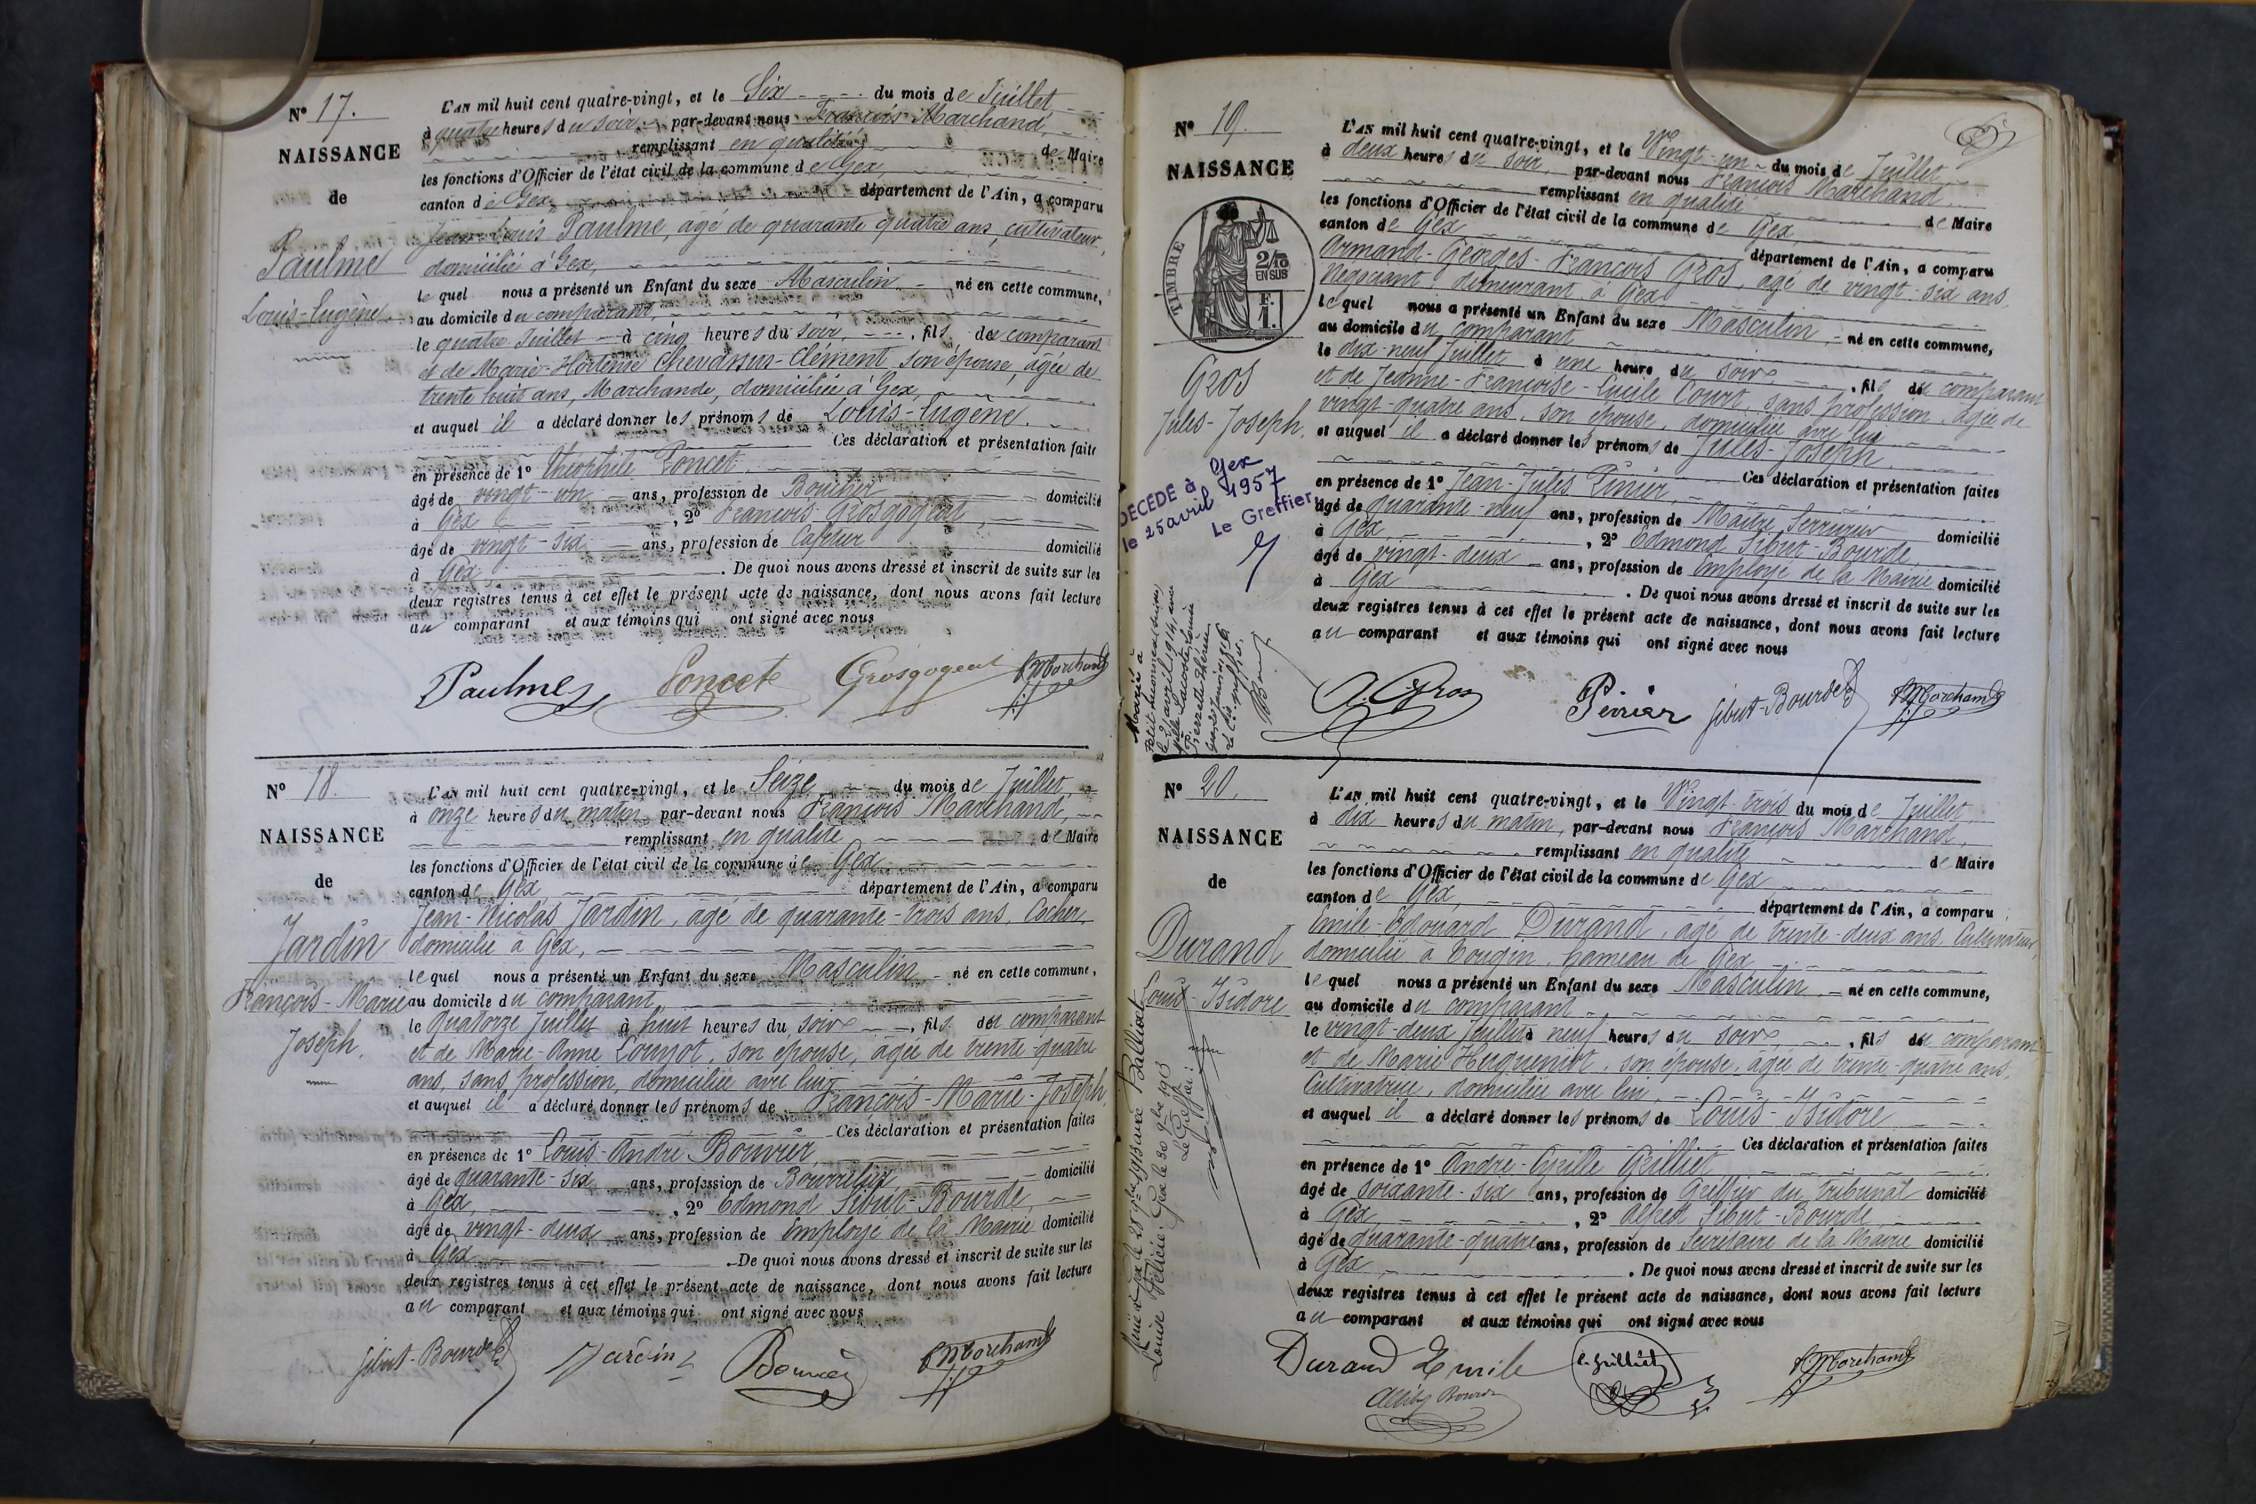 N° 17.
NAISSANCE
de
Paulme
Louis-Eugène
L'AN mil huit cent quatre-vingt, et le Six du mois de Juillet
à quatre heures du soir par-devant nous François Marchand,
remplissant en qualité de Maire
les fonctions d'Officier de l'état civil de la commune de Gex,
canton de Gex département de l'Ain, a comparu
Jean-Louis Paulme, âgé de quarante quatre ans, cultivateur,
domicilié à Gex,
lequel nous a présenté un Enfant du sexe Masculin né en cette commune,
au domicile du comparant,
le quatre Juillet à cinq heures du soir, fils du comparant
et de Marie-Hortense Chevassus-Clément son épouse, âgée de
trente huit ans, Marchande, domiciliée à Gex,
et auquel il a déclaré donner les prénoms de Louis-Eugène.
Ces déclaration et présentation faites
en présence de 1° Théophile Poncet
âgé de vingt-un ans, profession de Boucher domicilié
à Gex, 2° François Grosgogeat
âgé de vingt-six ans, profession de Cafetier domicilié
à Gex. De quoi nous avons dressé et inscrit de suite sur les
deux registres tenus à cet effet le présent acte de naissance, dont nous avons fait lecture
au comparant et aux témoins qui ont signé avec nous
Paulme Poncet Grosgogeat F Marchand
N° 18.
NAISSANCE
de
Jardin
François-Marie
Joseph.
L'AN mil huit cent quatre-vingt, et le Seize du mois de Juillet,
à onze heures du matin par-devant nous François Marchand,
remplissant en qualité de Maire
les fonctions d'Officier de l'état civil de la commune de Gex
canton de Gex département de l'Ain, a comparu
Jean-Nicolas Jardin, âgé de quarante-trois ans, Cocher,
domicilié à Gex,
lequel nous a présenté un Enfant du sexe Masculin né en cette commune,
au domicile du comparant,
le Quatorze Juillet à huit heures du soir, fils du comparant
et de Marie-Anne son épouse, âgée de trente-quatre
ans, sans profession, domiciliée avec lui,
et auquel il a déclaré donner les prénoms de François-Marie-Joseph,
Ces déclaration et présentation faites
en présence de 1° Louis-André Bouvier
âgé de quarante-six ans, profession de Bourrelier domicilié
à Gex, 2° Edmond Sibut-Bourde,
âgé de vingt-deux ans, profession de Employé de la Mairie domicilié
à Gex. De quoi nous avons dressé et inscrit de suite sur les
deux registres tenus à cet effet le présent acte de naissance, dont nous avons fait lecture
au comparant et aux témoins qui ont signé avec nous
Sibut-Bourde Jardin Bouvier F Marchand
N° 19.
NAISSANCE
TIMBRE
2/10
EN SUS
Gros
Jules-Joseph.
DECEDE à Gex
le 25 avril 1957
Le Greffier
Marié à
le 2 avril 1914, avec
L'AN mil huit cent quatre-vingt, et le Vingt-un du mois de Juillet,
à deux heures du soir, par-devant nous François Marchand
remplissant en qualité de Maire
les fonctions d'Officier de l'état civil de la commune de Gex,
canton de Gex département de l'Ain, a comparu
Armand-Georges-François Gros, âgé de vingt-six ans
Négociant, demeurant à Gex
lequel nous a présenté un Enfant du sexe Masculin, né en cette commune,
au domicile du comparant
le dix-neuf Juillet à une heure du soir, fils du comparant
et de Jeanne-Françoise-Lucile Court, sans profession, âgée de
vingt-quatre ans, son épouse, domiciliée avec lui
et auquel il a déclaré donner les prénoms de Jules-Joseph
Ces déclaration et présentation faites
en présence de 1° Jean-Jules Périer,
âgé de quarante-neuf ans, profession de Maître Serrurier domicilié
à Gex, 2° Edmond Sibut-Bourde,
âgé de vingt-deux ans, profession de Employé de la Mairie domicilié
à Gex. De quoi nous avons dressé et inscrit de suite sur les
deux registres tenus à cet effet le présent acte de naissance, dont nous avons fait lecture
au comparant et aux témoins qui ont signé avec nous
A. Gros Sibut-Bourde F Marchand
N° 20.
NAISSANCE
de
Durand
Louis-Isidore
Marié à Gex le 28 9bre 1918 avec
Louise Félicie. Gex le 30 9bre 1918
Le Greffier:
L'AN mil huit cent quatre-vingt, et le Vingt-trois du mois de Juillet,
à dix heures du matin, par-devant nous François Marchand,
remplissant en qualité de Maire
les fonctions d'Officier de l'état civil de la commune de Gex,
canton de Gex, département de l'Ain, a comparu
Emile-Edouard Durand, âgé de trente-deux ans Cultivateur,
domicilié à Tougin, hameau de Gex
lequel nous a présenté un Enfant du sexe Masculin né en cette commune,
au domicile du comparant
le vingt-deux Juillet à neuf heures du soir, fils du comparant
et de Marie Hugueniot, son épouse, âgée de trente-quatre ans,
Cultivatrice, domiciliée avec lui,
et auquel il a déclaré donner les prénoms de Louis-Isidore
Ces déclaration et présentation faites
en présence de 1° André-Cyrille Grilliet
âgé de soixante-six ans, profession de Greffier du tribunal domicilié
à Gex, 2° Alfred Sibut-Bourde,
âgé de quarante-quatre ans, profession de Secrétaire de la Mairie domicilié
à Gex. De quoi nous avons dressé et inscrit de suite sur les
deux registres tenus à cet effet le présent acte de naissance, dont nous avons fait lecture
au comparant et aux témoins qui ont signé avec nous
Durand Emile C. Grilliet F Marchand